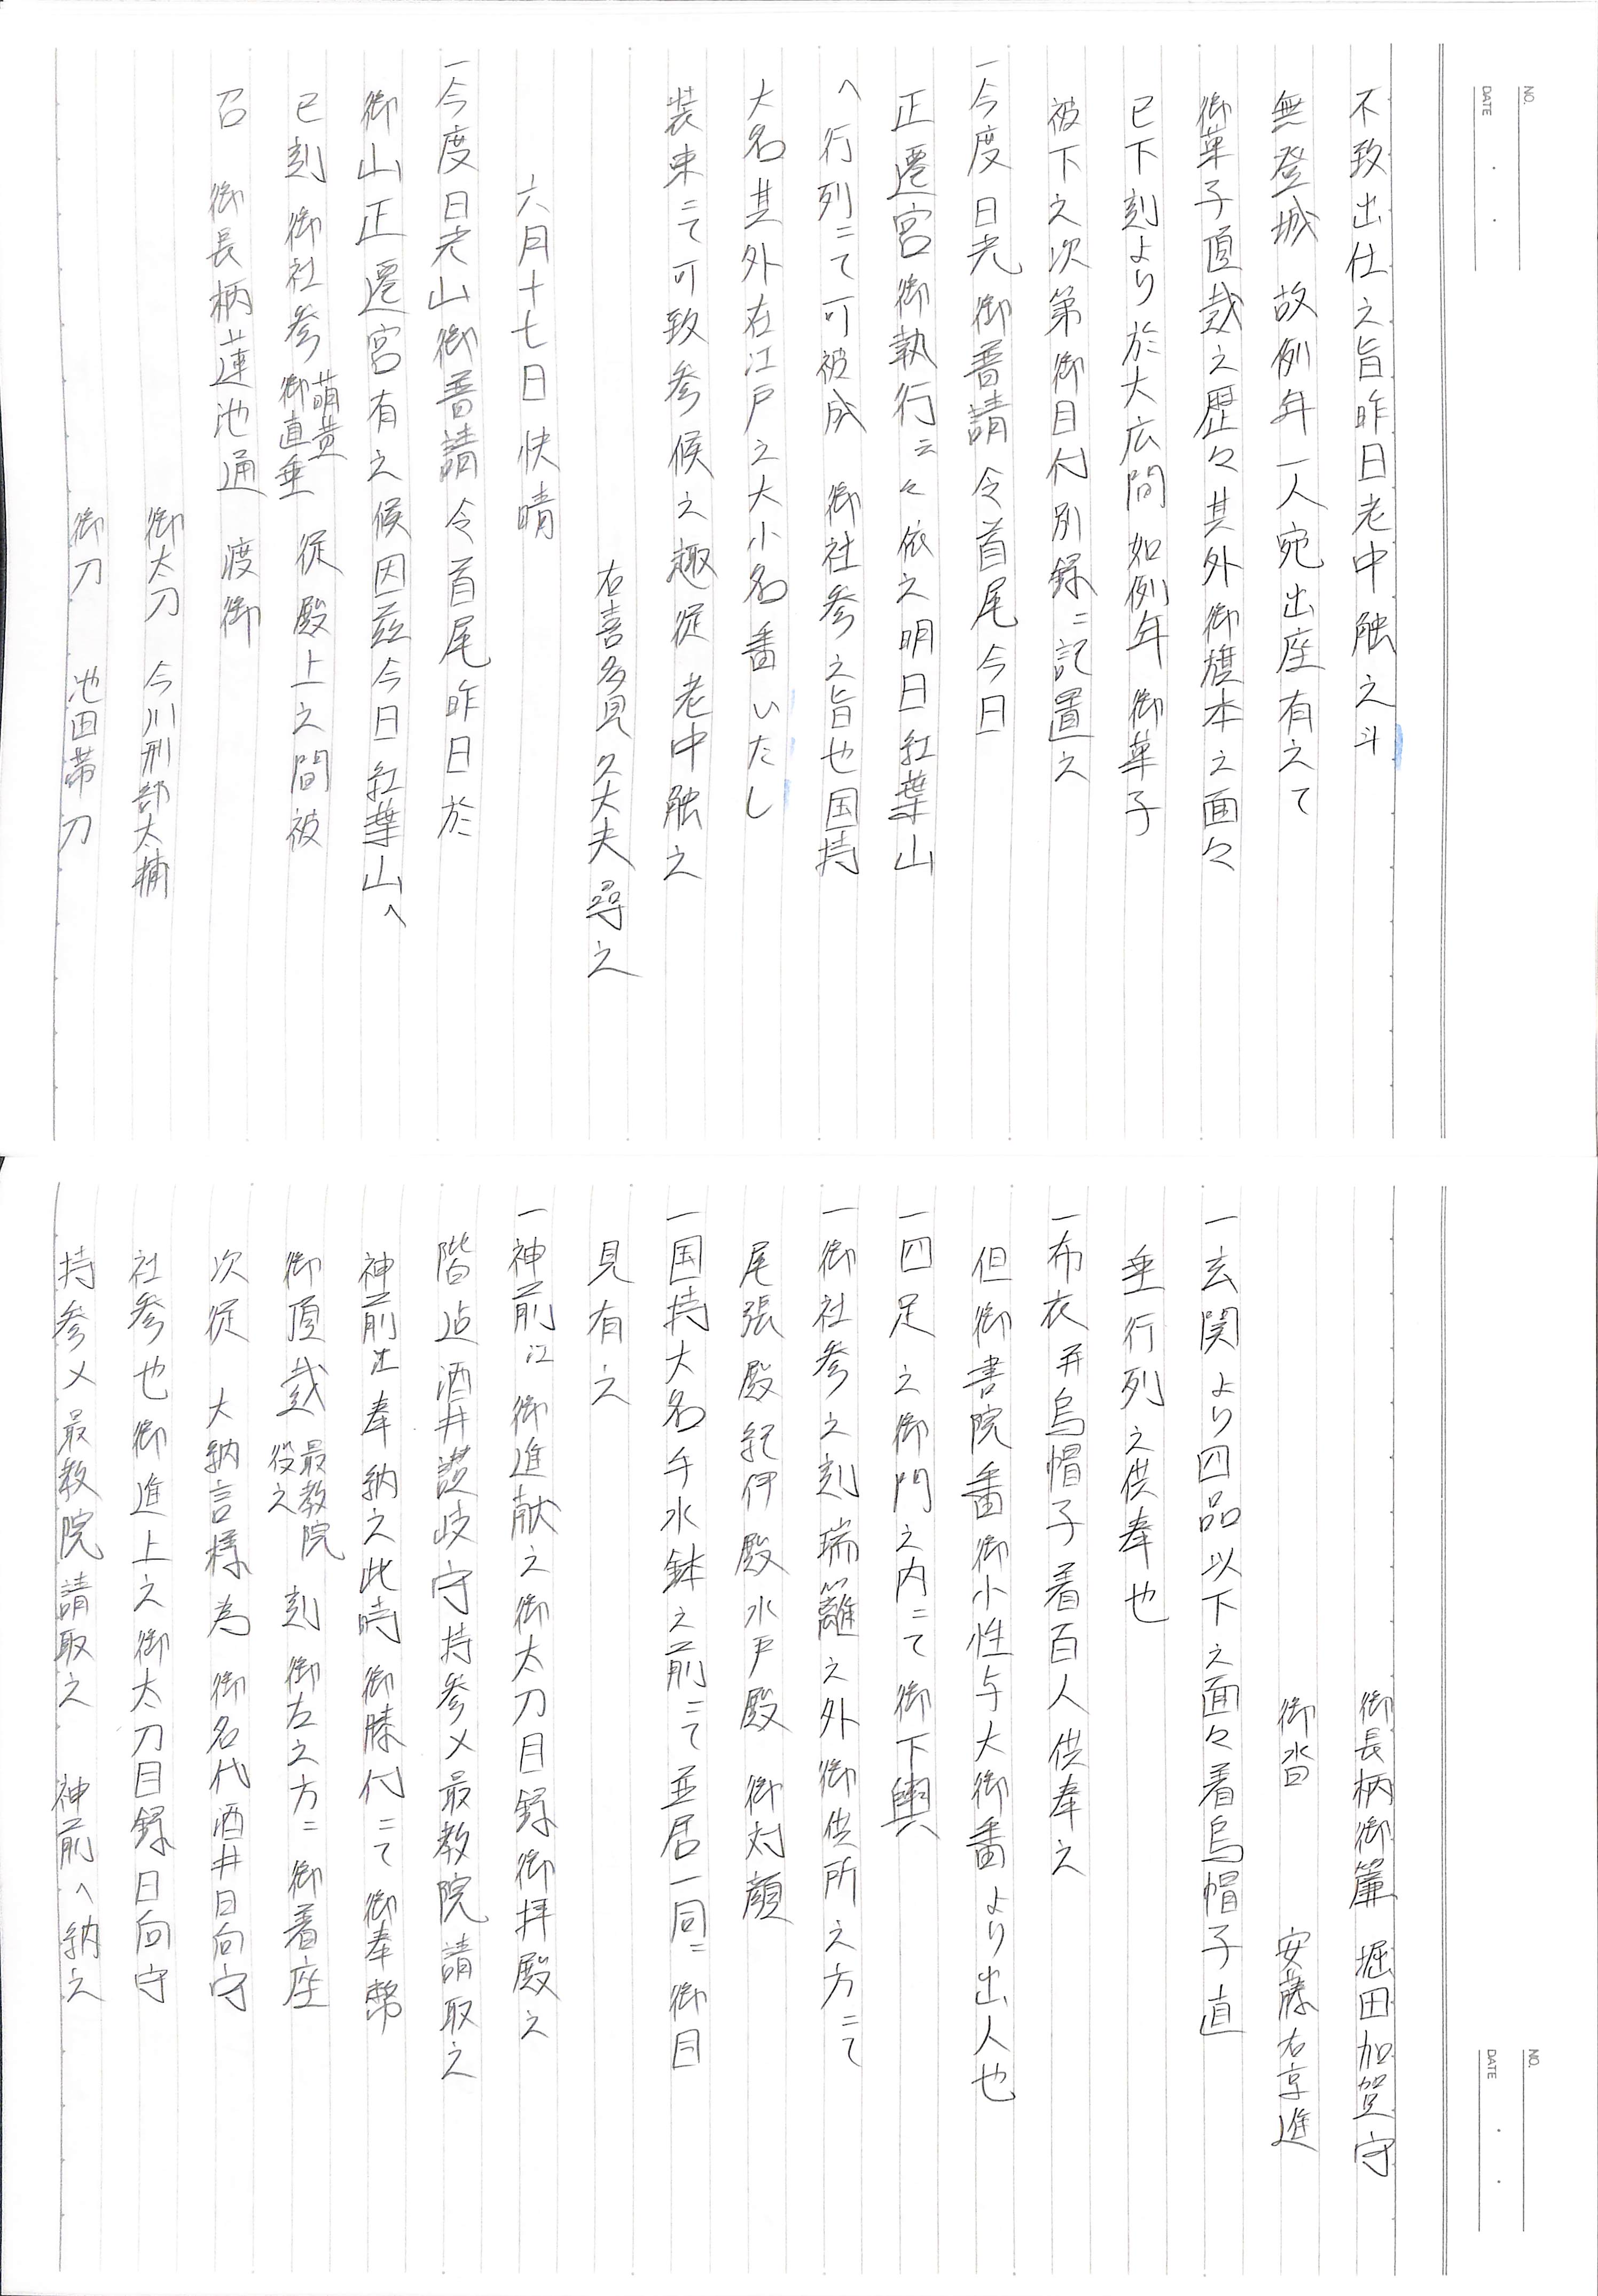 NO.
DATE
不致出仕之旨昨日老中触之斗
無登城 故例年一人宛出座有之て
御菓子頂戴之歴々其外御旗本之面々
巳下刻より於大広間 如例年 御菓子
被下之次第御目付別録ニ記置之
一今度日光 御普請 令首尾 今日
正遷宮 御執行云々依之明日 紅葉山
へ行列ニて可被成 御社参之旨也国持
大名其外在江戸之大小名番いたし
装束ニて可致参候之趣従 老中触之
右喜多見久大夫尋之
六月十七日快晴
一今度日光山御普請 令首尾昨日於
御山正遷宮有之候因茲今日 紅葉山へ
巳刻 御社参 萌黄御直垂 従 殿上之間被
召 御長柄蓮池通 渡御
御太刀 今川刑部太輔
御刀 池田帯刀
NO.
DATE
御長柄御簾 堀田加賀守
御沓 安藤右京進
一玄関より四品以下之面々着烏帽子直
垂行列之供奉也
一布衣并烏帽子着百人供奉之
但御書院番御小性与大御番より出人也
一四足之御門之内ニて御下輿
一御社参之刻瑞籬之外御供所之方ニて
尾張殿紀伊殿水戸殿 御対顔
一国持大名手水鉢之前ニて並居一同ニ御目
見有之
一神前江 御進献之御太刀目録御拝殿之
階迠酒井讃岐守持参〆最教院請取之
神前江奉納之此時 御膝付ニて 御奉幣
御頂戴 最教院役之 刻 御左之方ニ 御着座
次従 大納言様為 御名代酒井日向守
社参也御進上之御太刀目録日向守
持参〆最教院請取之 神前へ納之